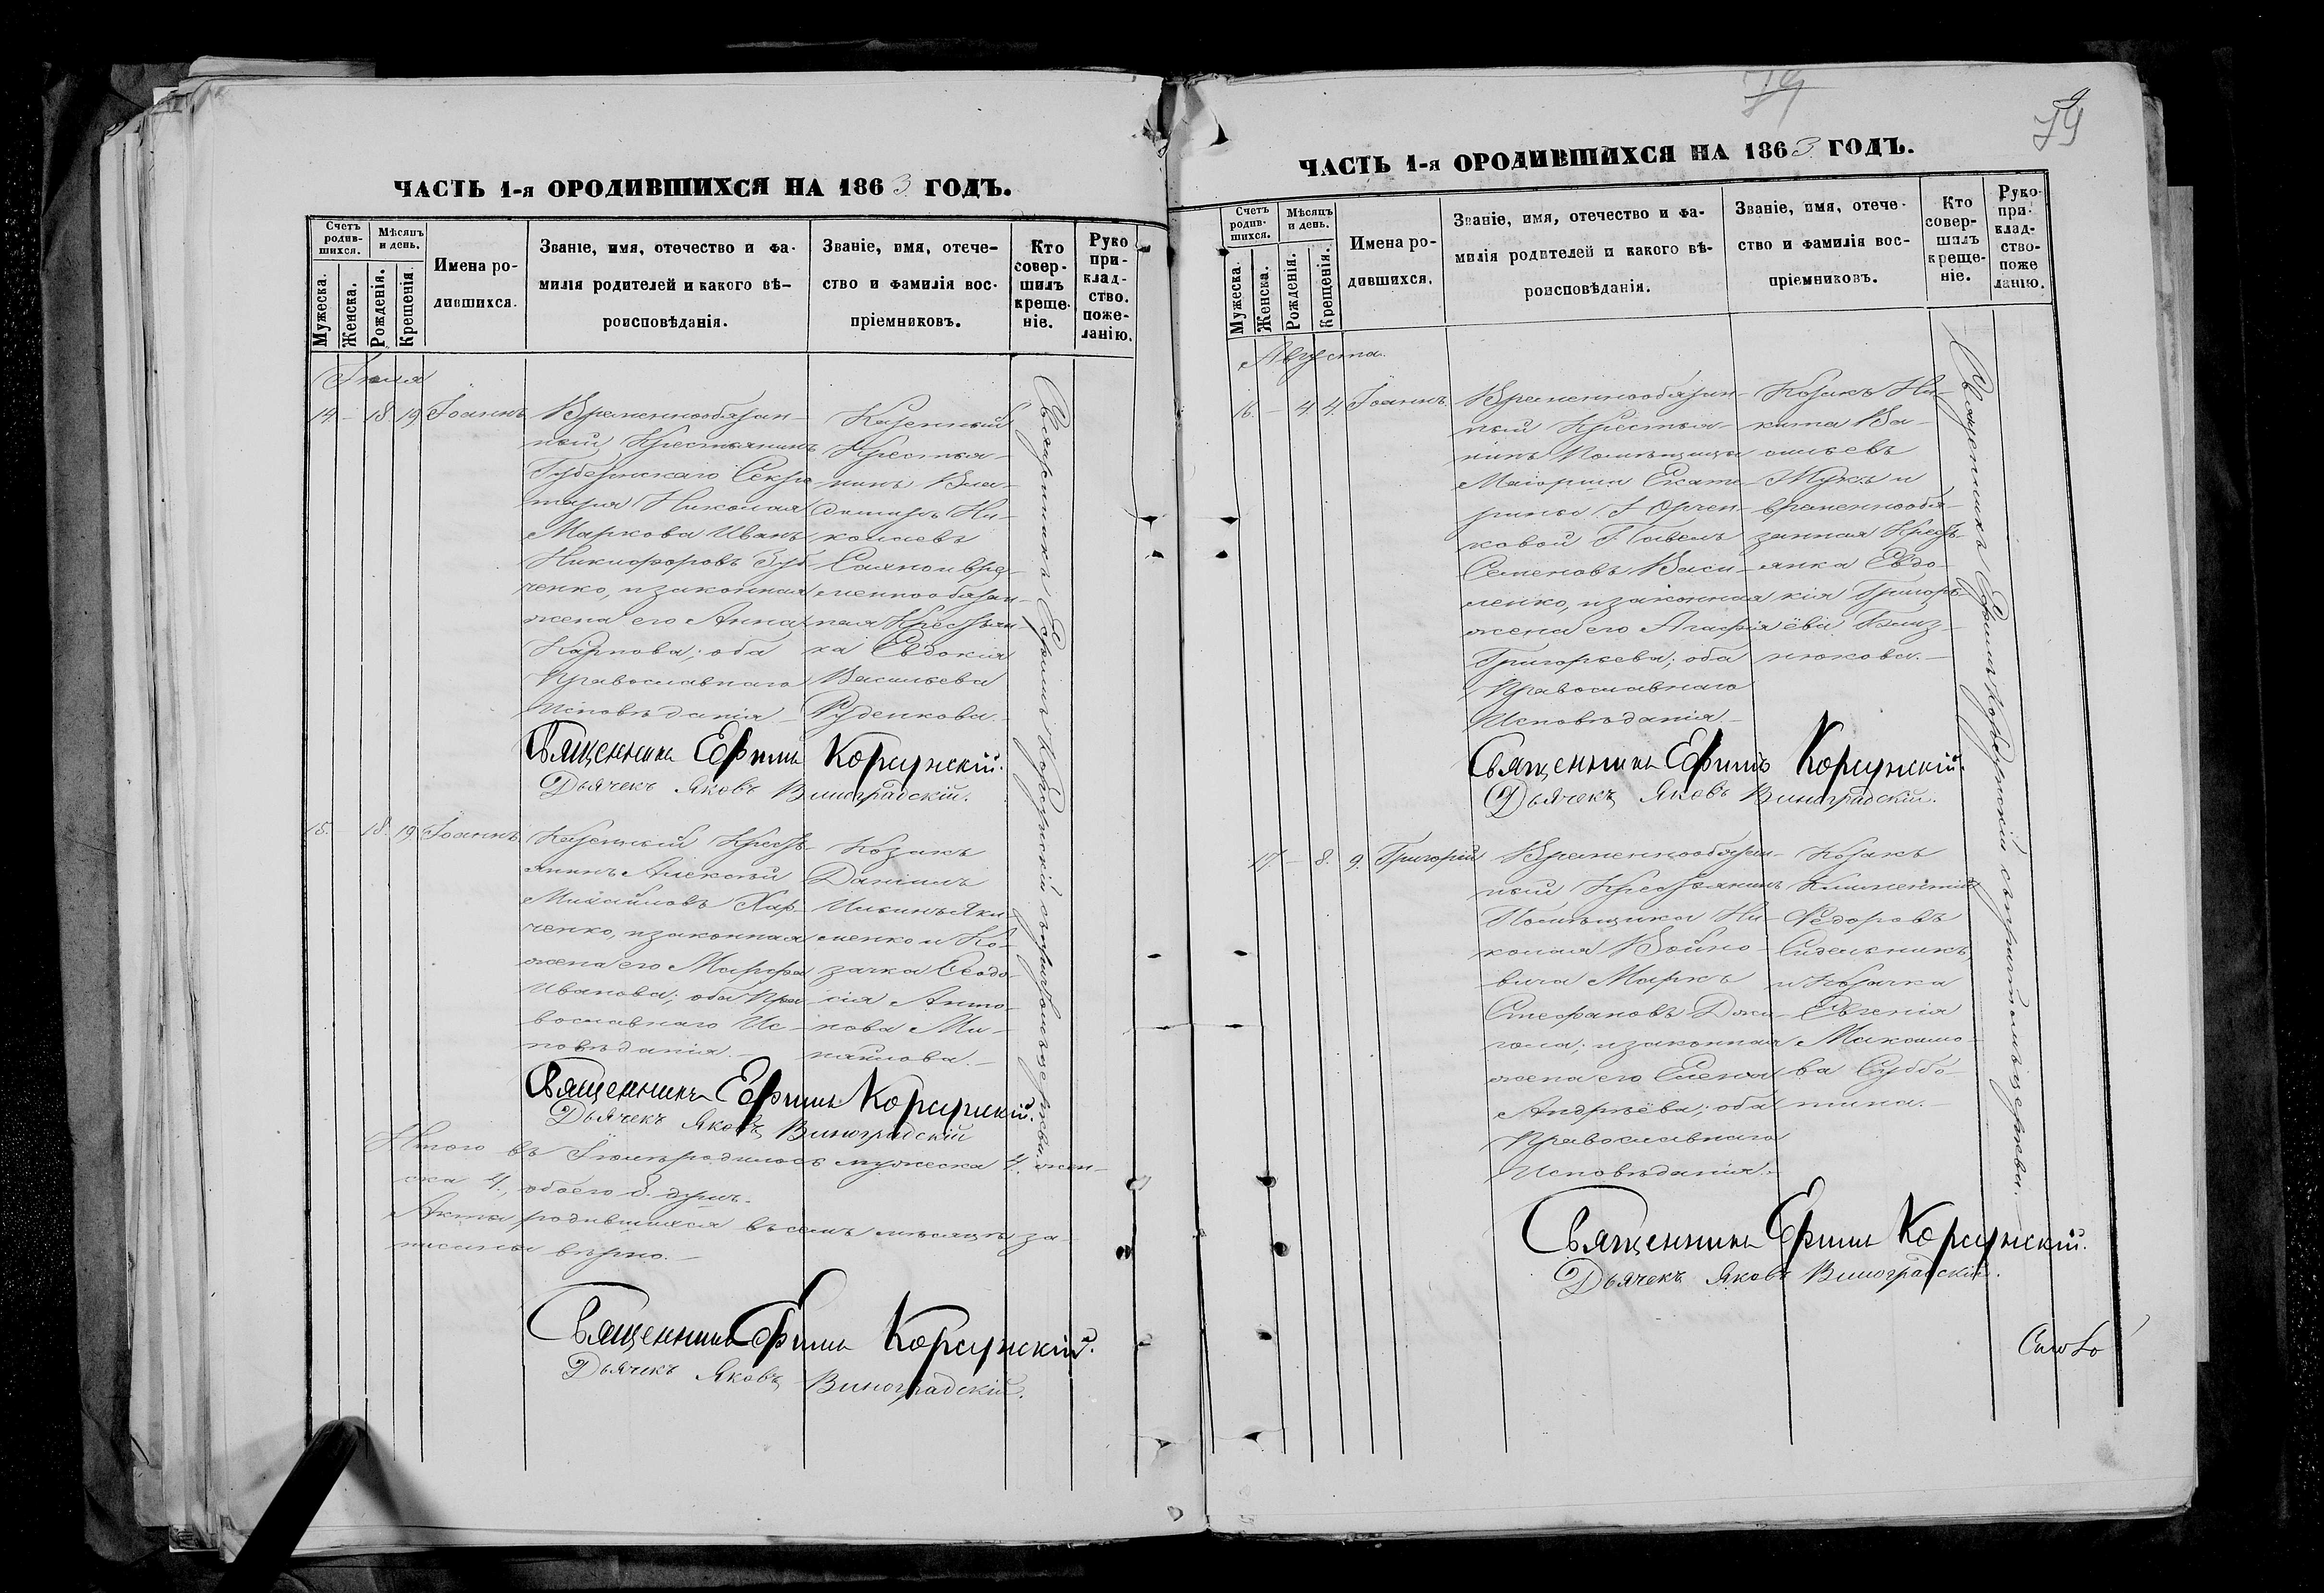 ЧАСТЬ 1-я ОРОДИВШИХСЯ НА 1863 ГОДЪ.
Счетъ родив-шихся.
Мѣсяцъ и день.
Мужеска.
Женска.
Рожденія.
Крещенія
Имена ро-
дившихся.
Званіе, имя, отечество и фа-
милія родителей и какого вѣ-
роисповѣданія.
Званіе, имя, отече-
ство и фамилія вос-
пріемниковъ.
Кто совер-шилъ креще-ніе.
Руко при-клад-ство. поже-ланію.
Іюля
14 – 18. 19. Іоаннъ
Временнообязан-
ный Крестьянинъ
Губернскаго Секре-
таря Николая
Маркова Иванъ
Никифоровъ
ченко, и законная
жена его Анна
Карпова; оба
Православнаго
Исповѣданія. –
Казенный
Крестья-
нинъ Вла-
димиръ Ни-
колаевъ
и вре-
меннообязан-
ная Крестьян-
ка Евдокия
Васильева
Руденкова. –
Священникъ Ефимъ Корсунскій.
Дьячекъ Яковъ Виноградскій.
15. – 18. 19. Іоаннъ
Казенный Кресть-
янинъ Алексѣй
Михайловъ Хар-
ченко, и законная
жена его Марфа
Иванова; оба Пра-
вославнаго Ис-
повѣданія. –
Козакъ
Даніилъ
Ильинъ Яки-
менко и Ко-
зачка Феодо-
сія Анто-
нова Ми-
хайлова. –
Священникъ Ефимъ Корсунскій.
Дьячекъ Яковъ Виноградскій
Священникъ Ефимъ Корсунскій съ причтомъ церкви.
Итого въ Іюлѣ родилось мужеска 4. жен-
ска 4., обоего 8. душъ.
Акты родившихся въ семъ мѣсяцѣ за-
писаны вѣрно. –
Священникъ Ефимъ Корсунскій.
Дьячекъ Яковъ Виноградскій.
79
79
ЧАСТЬ 1-я ОРОДИВШИХСЯ НА 1863 ГОДЪ.
Счетъ родив-шихся.
Мѣсяцъ и день.
Мужеска.
Женска.
Рожденія.
Крещенія.
Имена ро-
дившихся.
Званіе, имя, отечество и фа-
милія родителей и какого вѣ-
роисповѣданія.
Званіе, имя, отече-
ство и фамилія вос-
пріемниковъ.
Кто совер-шилъ креще-ніе.
Руко-при-клад-ство-поже ланію.
Августа.
16. – 4. 4. Іоаннъ.
Временнообязан-
ный Крестья-
нинъ Помѣщицы
Маіорши Екате-
рины
Павелъ
Семеновъ Васи-
ленко, и законная
жена его Агафія
Григорьева; оба
Православнаго
Исповѣданія. –
Козакъ Ни-
кита Ва-
сильевъ
и
временнообя-
занная Кресть-
янка Евдо-
кія Григорь-
ева
Священникъ Ефимъ Корсунскій.
Дьячекъ Яковъ Виноградскій.
17. – 8. 9. Григорій
Временнообязан-
ный Крестьянинъ
Помѣщика Ни-
колая Война-
вича Маркъ
Стефановъ
и законная
жена его Елена
Андрѣева; оба
Православнаго
Исповѣданія. –
Козакъ
Климентій
Федоровъ
Сидельникъ,
и Козачка
Евгенія
Суббо-
тина. –
Священникъ Ефимъ Корсунскій съ причтомъ церкви.
Священникъ Ефимъ Корсунскій.
Дьячекъ Яковъ Виноградскій.